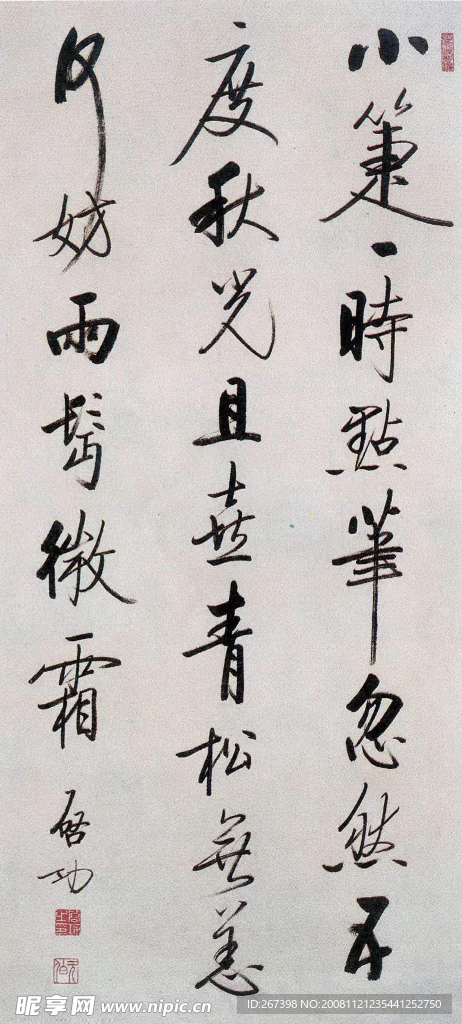 小箑一時點筆忽然五
度秋光且喜青松無恙
何妨兩鬢微霜
啓功
昵享网 www.nipic.cn
ID:267398 NO:20081121235441252750